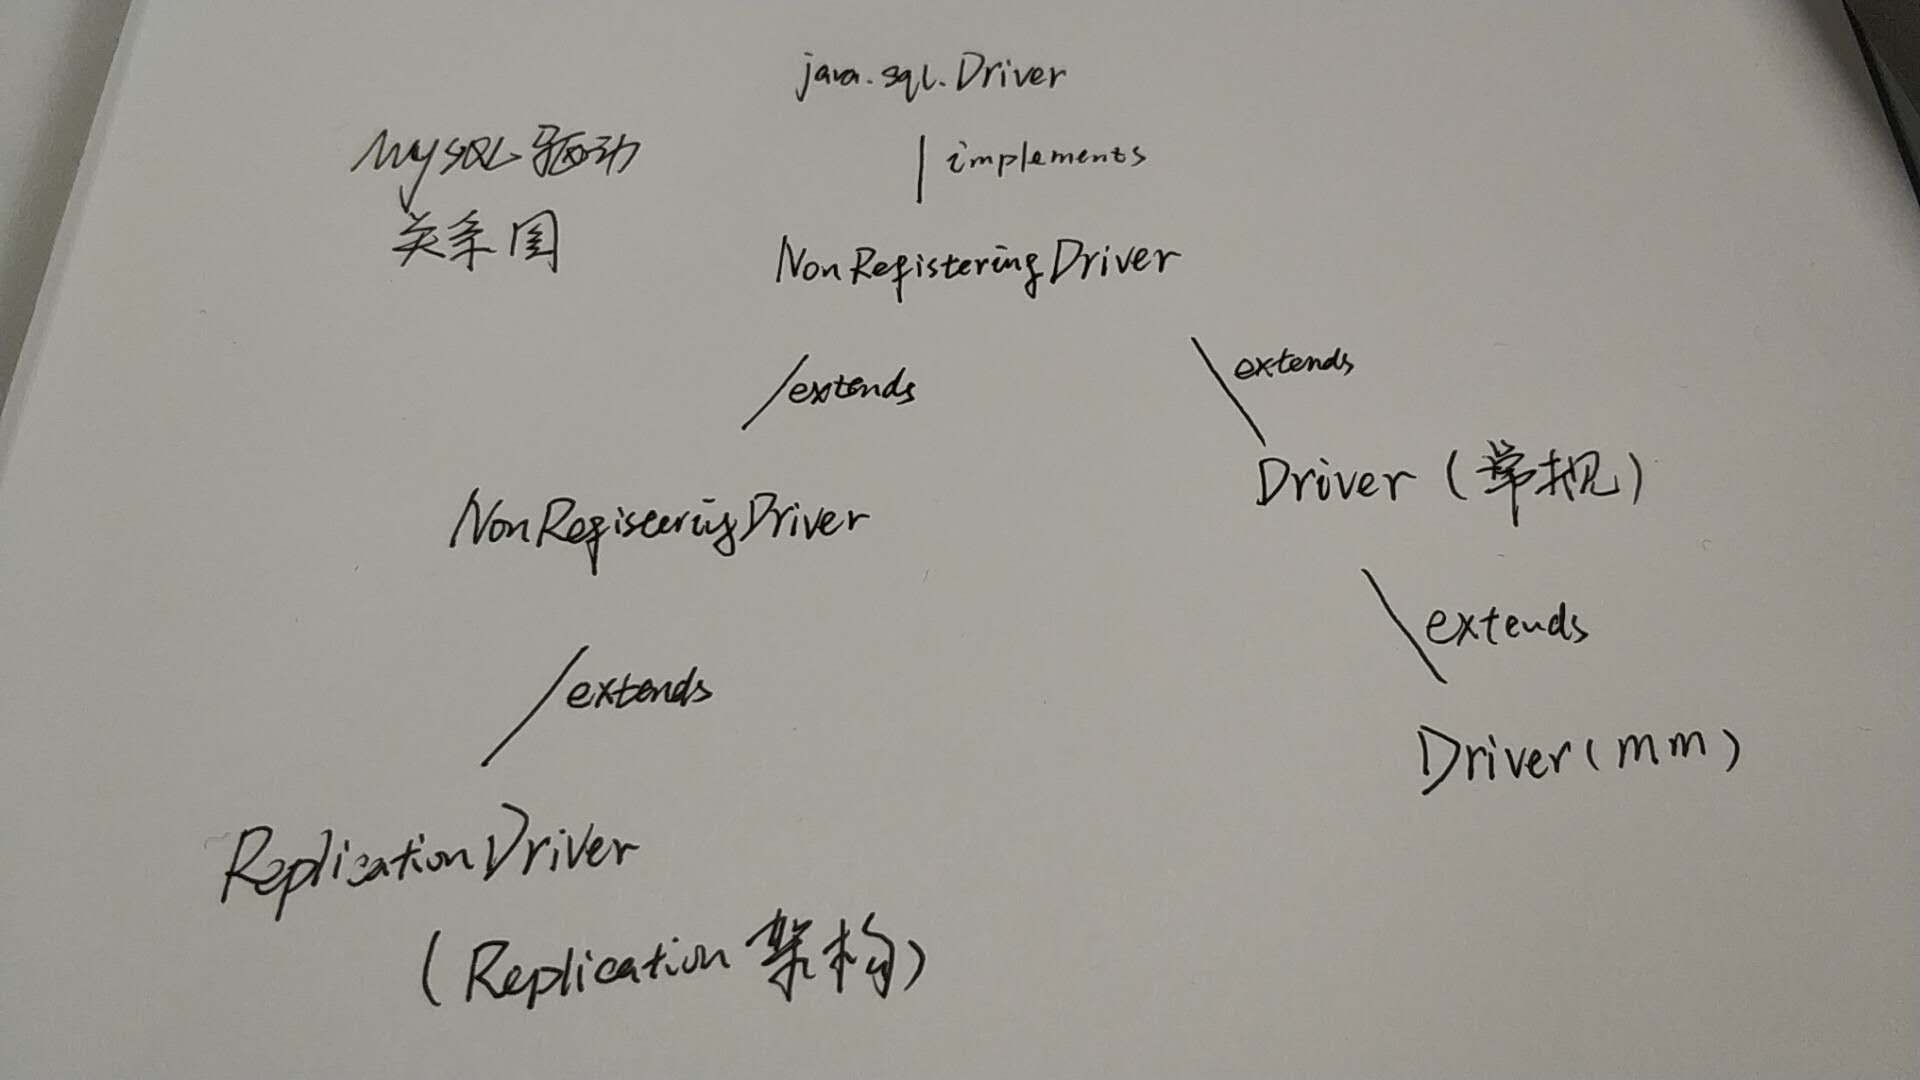 java.sql.Driver
MySQL驱动
关系图
implements
NonRegisteringDriver
extends
extends
Driver (常规)
NonRegisteringDriver
extends
extends
Driver(mm)
ReplicationDriver
(Replication架构)